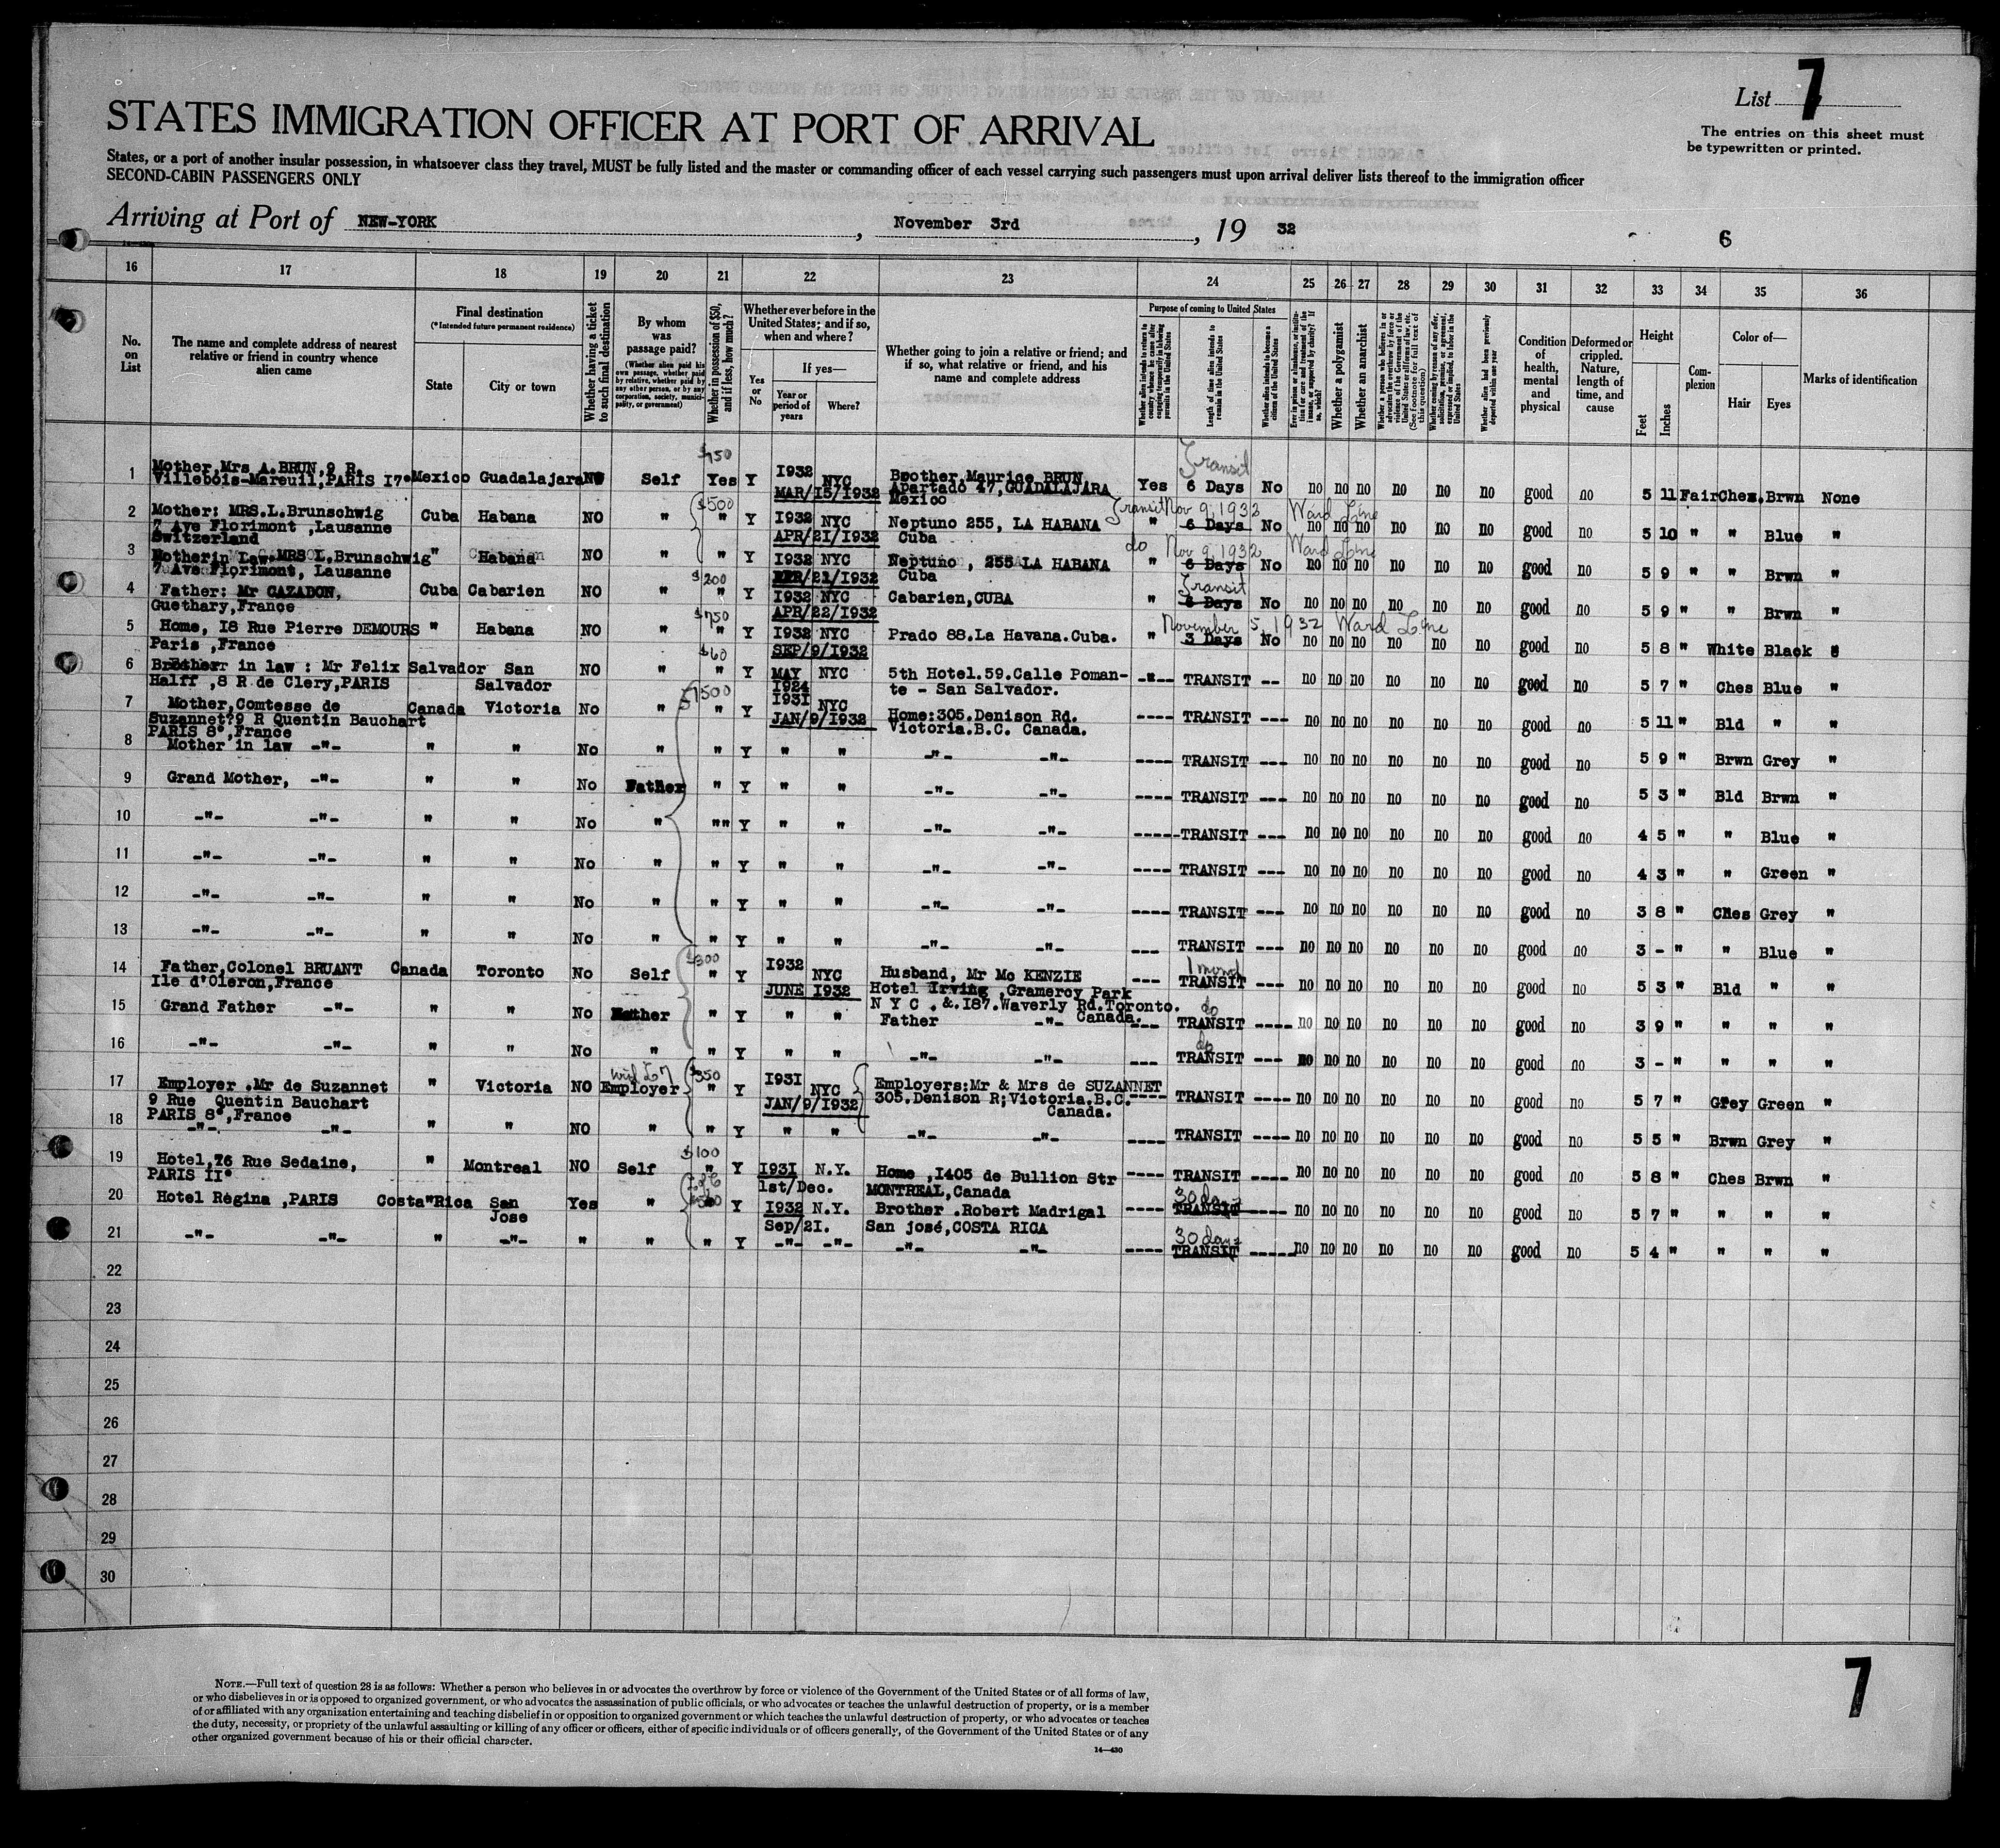 List 7
STATES IMMIGRATION OFFICER AT PORT OF ARRIVAL
The entries on this sheet must
be typewritten or printed.
States, or a port of another insular possession, in whatsoever class they travel, MUST be fully listed and the master or commanding officer of each vessel carrying such passengers must upon arrival deliver lists thereof to the immigration officer
SECOND-CABIN PASSENGERS ONLY
Arriving at Port of NEW-YORK, November 3rd, 19 32
6
16 17 18 19 20 21 22 23 24 25 26 27 28 29 30 31 32 33 34 35 36
No. on List
The name and complete address of nearest relative or friend in country whence alien came
Final destination
(*Intended future permanent residence)
State
City or town
Whether having a ticket to such final destination
By whom was passage paid?
(Whether alien paid his own passage, whether paid by relative, whether paid by any other person, or by any corporation, society, municipality, or government)
Whether in possession of $50, and if less, how much?
Whether ever before in the United States; and if so, when and where?
Yes or No
If yes—
Year or period of years
Where?
Whether going to join a relative or friend; and if so, what relative or friend, and his name and complete address
Purpose of coming to United States
Length of time alien intends to remain in the United States
Whether alien intends to become a citizen of the United States
Whether a polygamist
Whether an anarchist
Whether alien had been previously deported within one year
Condition of health, mental and physical
Deformed or crippled. Nature, length of time, and cause
Height
Feet
Inches
Complexion
Color of—
Hair
Eyes
Marks of identification
1 Mother,Mrs A.BRUN,9 R. Mexico Guadalajara NO Self $150 Yes Y 1932 NYC Brother,Maurice BRUN Yes Transit 6 Days No no no no no no no good no 5 11 Fair Ches. Brwn None
Villebois-Mareuil,PARIS 17° MAR/15/1932 Apartado 47,GUADALAJARA
Mexico
2 Mother: MRS.L.Brunschwig Cuba Habana NO " $500 " Y 1932 NYC Neptuno 255, LA HABANA Transit Nov 9, 1932 Ward Line " 6 Days No no no no no no no good no 5 10 " " Blue "
7 Ave Florimont ,Lausanne APR/21/1932 Cuba
Switzerland
3 Motherin Law MRS L.Brunschwig " Habana NO " " Y 1932 NYC Neptuno , 255 LA HABANA do Nov 9, 1932 Ward Line " 6 Days No no no no no no no good no 5 9 " " Brwn "
7 Ave Florimont, Lausanne /21/1932 Cuba
4 Father: Mr CAZABON, Cuba Cabarien NO " $200 " Y 1932 NYC Cabarien,CUBA " Transit 6 Days No no no no no no no good no 5 9 " " Brwn "
Guethary,France APR/22/1932
5 Home, 18 Rue Pierre DEMOURS " Habana NO " $750 " Y 1932 NYC Prado 88.La Havana.Cuba. " November 5, 1932 Ward Line 3 Days No no no no no no no good no 5 8 " White Black "
Paris ,France SEP/9/1932
6 Brother in law : Mr Felix Salvador San NO " $60 " Y MAY NYC 5th Hotel.59.Calle Poman- -"- TRANSIT -- no no no no no no good no 5 7 " Ches Blue "
Halff ,8 R de Clery,PARIS Salvador 1924 te - San Salvador.
7 Mother,Comtesse de Canada Victoria No " $1500 " Y 1931 NYC Home:305.Denison Rd. ---- TRANSIT --- no no no no no no good no 5 11 " Bld " "
Suzannet?9 R Quentin Bauchart JAN/9/1932 Victoria.B.C. Canada.
PARIS 8°,France
8 Mother in law -"- " " No " " Y " " -"- -"- ---- TRANSIT --- no no no no no no good no 5 9 " Brwn Grey "
9 Grand Mother, -"- " " No Father " Y " " -"- -"- ---- TRANSIT --- no no no no no no good no 5 3 " Bld Brwn "
10 -"- -"- " " No " "" Y " " -"- -"- -----TRANSIT --- no no no no no no good no 4 5 " " Blue "
11 -"- -"- " " No " " Y " " -"- -"- ---- TRANSIT --- no no no no no no good no 4 3 " " Green "
12 -"- -"- " " No " " Y " " -"- -"- ---- TRANSIT --- no no no no no no good no 3 8 " Ches Grey "
13 -"- -"- " " No " " Y " " -"- -"- --- TRANSIT --- no no no no no no good no 3 - " " Blue "
14 Father,Colonel BRUANT Canada Toronto No Self $300 " Y 1932 NYC Husband, Mr Mc KENZIE --- TRANSIT --- no no no no no no good no 5 3 " Bld " "
Ile d'Oleron,France JUNE 1932 Hotel Irving ,Gramercy Park
N Y C . &.187.Waverly Rd.Toronto.
Canada.
15 Grand Father -"- " " No Mother " Y " " Father -"- --- do TRANSIT ---- no no no no no no good no 3 9 " " " "
16 -"- -"- " " No " " Y " " -"- -"- --- do TRANSIT --- no no no no no no good no 3 - " " " "
17 Employer .Mr de Suzannet " Victoria NO Employer $350 " Y 1931 NYC Employers:Mr & Mrs de SUZANNET ---- TRANSIT ---- no no no no no no good no 5 7 " Grey Green "
9 Rue Quentin Bauchart JAN/9/1932 305.Denison R;Victoria.B.C.
PARIS 8°,France Canada.
18 -"- -"- " " NO " " Y " " -"- -"- ---- TRANSIT ---- no no no no no no good no 5 5 " Brwn Grey "
19 Hotel,76 Rue Sedaine, " Montreal NO Self $100 " Y 1931 N.Y. Home ,1405 de Bullion Str ---- TRANSIT ---- no no no no no no good no 5 8 " Ches Brwn "
PARIS II° 1st/Dec. MONTREAL,Canada
20 Hotel Régina ,PARIS Costa"Rica San Yes " Y 1932 N.Y. Brother .Robert Madrigal ---- 30 days TRANSIT ---- no no no no no no good no 5 7 " " " "
Jose Sep/21. San josé,COSTA RICA
21 -"- -"- " -"- " " " Y -"- -"- -"- -"- ---- 30 days TRANSIT ----- no no no no no no good no 5 4 " " " "
22
23
24
25
26
27
28
29
30
NOTE.—Full text of question 28 is as follows: Whether a person who believes in or advocates the overthrow by force or violence of the Government of the United States or of all forms of law,
or who disbelieves in or is opposed to organized government, or who advocates the assassination of public officials, or who advocates or teaches the unlawful destruction of property, or is a member
of or affiliated with any organization entertaining and teaching disbelief in or opposition to organized government or which teaches the unlawful destruction of property, or who advocates or teaches
the duty, necessity, or propriety of the unlawful assaulting or killing of any officer or officers, either of specific individuals or of officers generally, of the Government of the United States or of any
other organized government because of his or their official character.
14—430
7